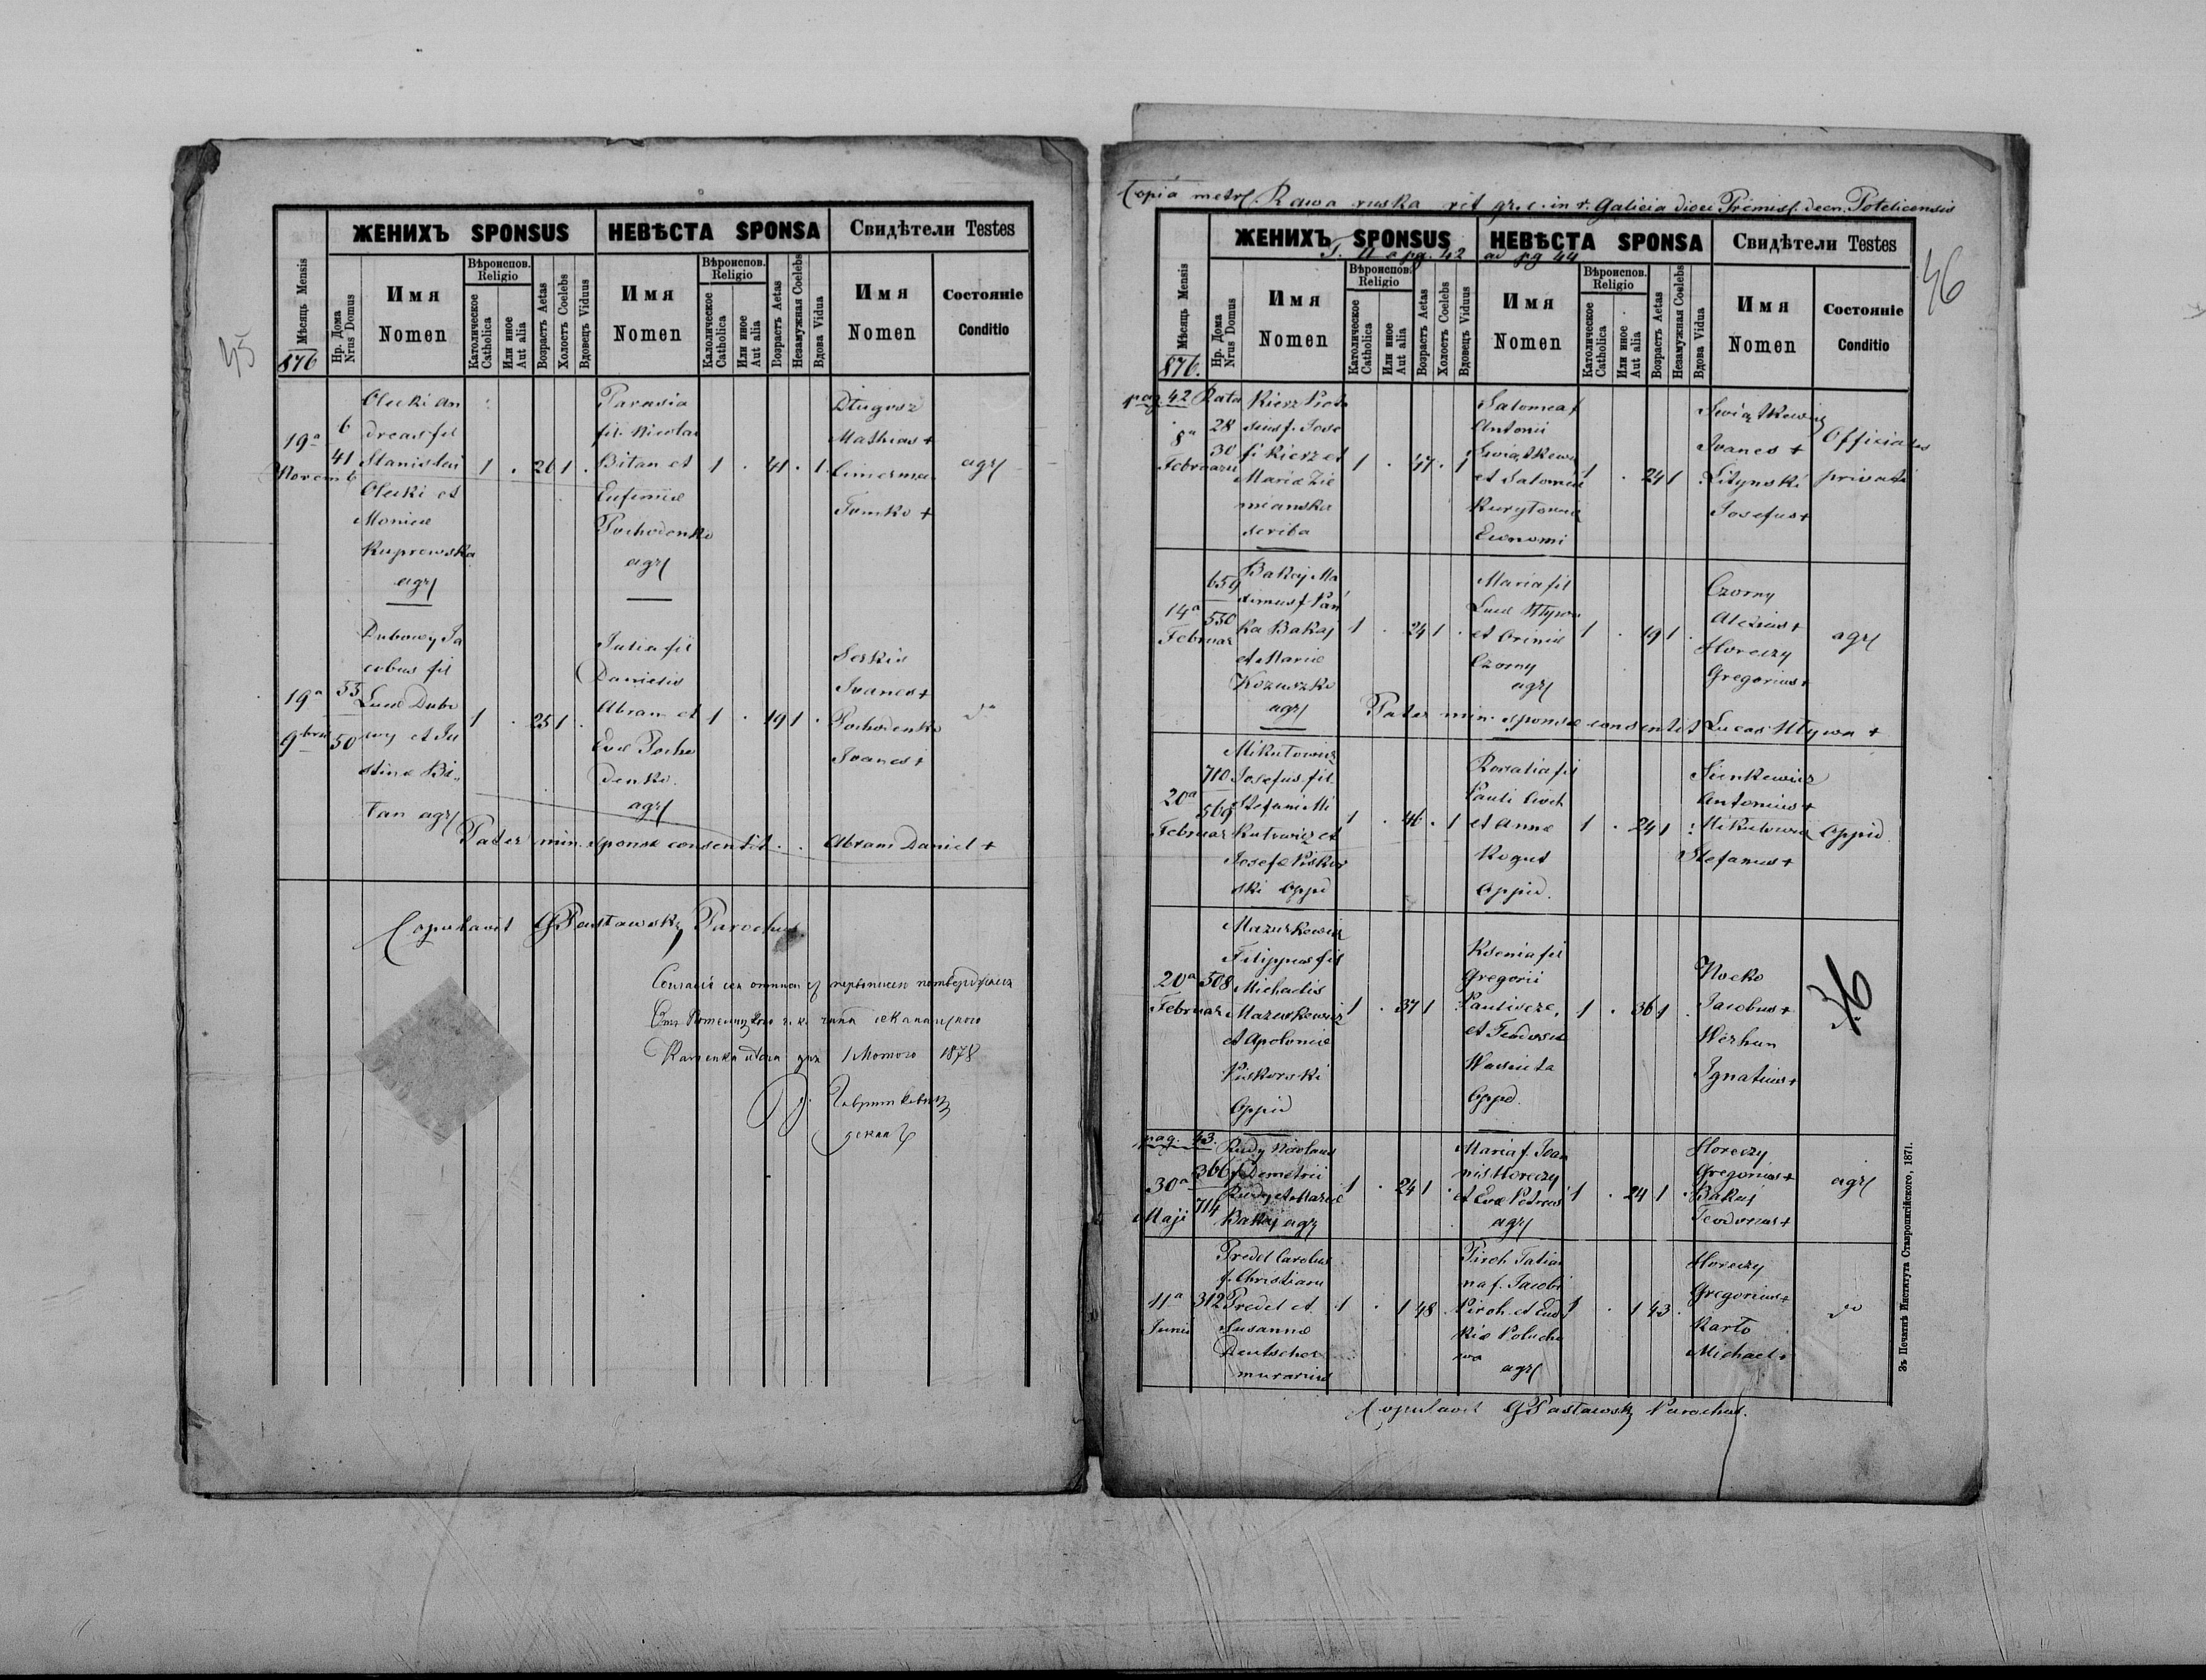 45
ЖЕНИХЪ SPONSUS НЕВѢСТА SPONSA Свидѣтели Testes
Мѣсяць Mensis
876
Нр. Дома
Nrus Domus
Имя
Nomen
Вѣроиспов.
Religio
Католическое
Catholica
Или иное
Aut alia
Возрастъ Aetas
Холостъ Coelebs
Вдовецъ Viduus
Имя
Nomen
Вѣроиспов.
Religio
Католическое
Catholica
Или иное
Aut alia
Возрастъ Aetas
Незамужная Coelebs
Вдова Vidua
Имя
Nomen
Состоянie
Conditio
19a
Novemb
6
41
Olecki An
dreas fil
Stanislai
Olecki et
Monicae
Kuprewska
agr
1 . 26 1 .
Parasia
fil. Nicolai
Bitan et
Eufemiae
Pochodenko
agr
1 . 41 . 1
Długosz
Mathias +
Cimerman
Tomko +
agr
19a
9bris
53
50
Dubowy Ja
cobus fil
Lucae Dubo
wy et Ju
stinae Bi
tan agr
1 . 25 1 .
Julia fil
Danielis
Abram et
Evae Pocho
denko.
agr
1 . 19 1 .
Seskiw
Ivanes +
Pochodenko
Ivanes +
do
Pater min. sponsae consentit . . Abram Daniel +
Copulavit G Pasławski Parochus
1878
декан
Copia metr. Rawa ruska rit gr. c. in r. Galicia dioec Premisl. decn. Potelicensis
46
ЖЕНИХЪ SPONSUS НЕВѢСТА SPONSA Свидѣтели Testes
T. II a pg. 42 ad pg 44
Мѣсяць Mensis
876.
Нр. Дома
Nrus Domus
Имя
Nomen
Вѣроиспов.
Religio
Католическое
Catholica
Или иное
Aut alia
Возрастъ Aetas
Холостъ Coelebs
Вдовецъ Viduus
Имя
Nomen
Вѣроиспов.
Religio
Католическое
Catholica
Или иное
Aut alia
Возрастъ Aetas
Незамужная Coelebs
Вдова Vidua
Имя
Nomen
Состоянie
Conditio
pag 42 Rata
8a
Februarii
28
30
Kierz
f. Jose
fi Kierz et
Mariae Zie
mianska
scriba
1 . 47 . 1
Salomea f
Antonii
Swiątkewicz
et Salomeae
Kuryłowicz
Economi
1 . 24 1
Swiątkewicz
Ivanes +
Litynski
Josefus +
Officiales
privati
14a
Februar
659
550
Bakaj Ma
ximus f Pań
ka Bakaj
et Mariae
Kozuszko
agr
1 . 24 1 .
Maria fil
Lucae Hływa
et Irinae
Czorny
agr
1 . 19 1 .
Czorny
Alexius +
Horeczy
Gregorius +
agr
Pater min. sponsae consentit Lucas Hływa +
20a
Februar
710
569
Mikułowicz
Josefus fil
Stefani Mi
kułowicz et
Josefae Piskor
ski Oppid
1 . 46 . 1
Rosalia fil
Pauli
et Annae
Kogut
Oppid.
1 . 24 1 .
Sienkewicz
Antonius +
Mikułowicz
Stefanus +
Oppid
20a
Februar
508
Mazurkewicz
Filippus fil
Michaelis
Mazurkewicz
et Apoloniae
Piskorski
Oppid
1 . 37 1
Ksenia fil
Gregorii
et Teodosiae
Oppid.
1 . 36 1 .
Nocko
Jacobus +
Werhun
Ignatius +
46
pag. 43.
30a
Maji
366
714
Rudy Nicolaus
f. Demetrii
Rudy et Mariae
Bakaj agr
1 . 24 1 .
Maria f. Joan
nis Horeczy
et Evae Petras
agr
1 . 24 1 .
Horeczy
Gregorius +
Bakaj
Teodorus +
agr
11a
Junii
312
Predel Carolus
f. Christiani
Predel et
Susannae
Deutscher
murarius
1 . 1 48 .
Piroh Tatia
na f. Jacobi
Piroh et Eudo
kiae
agr
1 . 1 43 .
Horeczy
Gregorius +
Karło
Michael +
do
Copulavit G Pasławski Parochus.
Зъ Печатнѣ Института Ставропигійского, 1871.